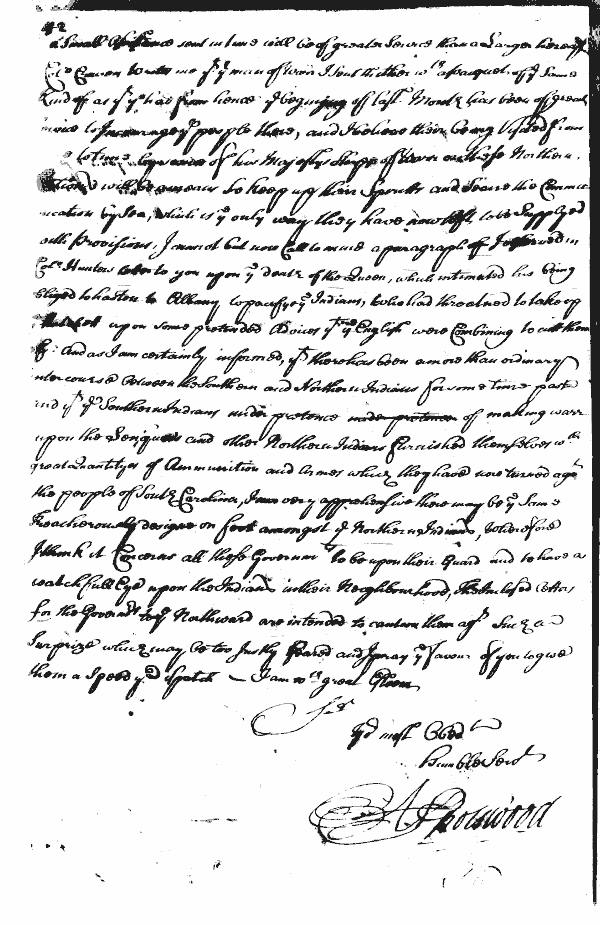 42
a Small Assistance sent in time will be of greater Service than a Larger hereafter
Craven to me yt ye man of Warr I sent thither wth a of ye same
kind of as yt had from hence ye begining of last Month has been of great
to Incourage ye people there, and I believe their being Visited from
to time by one of his Majestys Shipps of Warr on these Northern
Stations will be a means to keep up their Spiritts and Secure the Commu
nication by Sea, which is ye only way they have now left to be Supplyed
with Provisions. I cannot but now Call to mind a paragraph I observed in
Colo. Hunters letter to you upon ye death of the Queen, which intimated his being
obliged to hasten to Albany to pacify ye Indians, who had threatned to take up
Hatchet upon some pretended Advices yt ye English were Combining to cutt them
: And as I am certainly informed, yt there has been a more than ordinary
ntercourse between the Southern and Northern Indians for some time past
and yt ye Southern Indians under pretence under pretence of making warr
upon the Senequas and other Northern Indians furnished themselves wth
great Quantitys of Ammunition and Armes which they have now turned agst
the people of South Carolina, I am very apprehensive there may be ye Same
Treacherously designe on foot amongst ye Northern Indians, Wherefore
I think it Concerns all these Governmts to be upon their Guard and to have a
watchfull Eye upon the Indians in their Neighbourhood, The Inclosed letters
for the Governrs to ye Northward are intended to caution them agst such a
Surprize which may be too Justly feared and I pray ye favour of you to give
them a Speedy dispatch — I am wth great Esteem
Sr
Yor most Obedt
humble Servt
A Spotswood